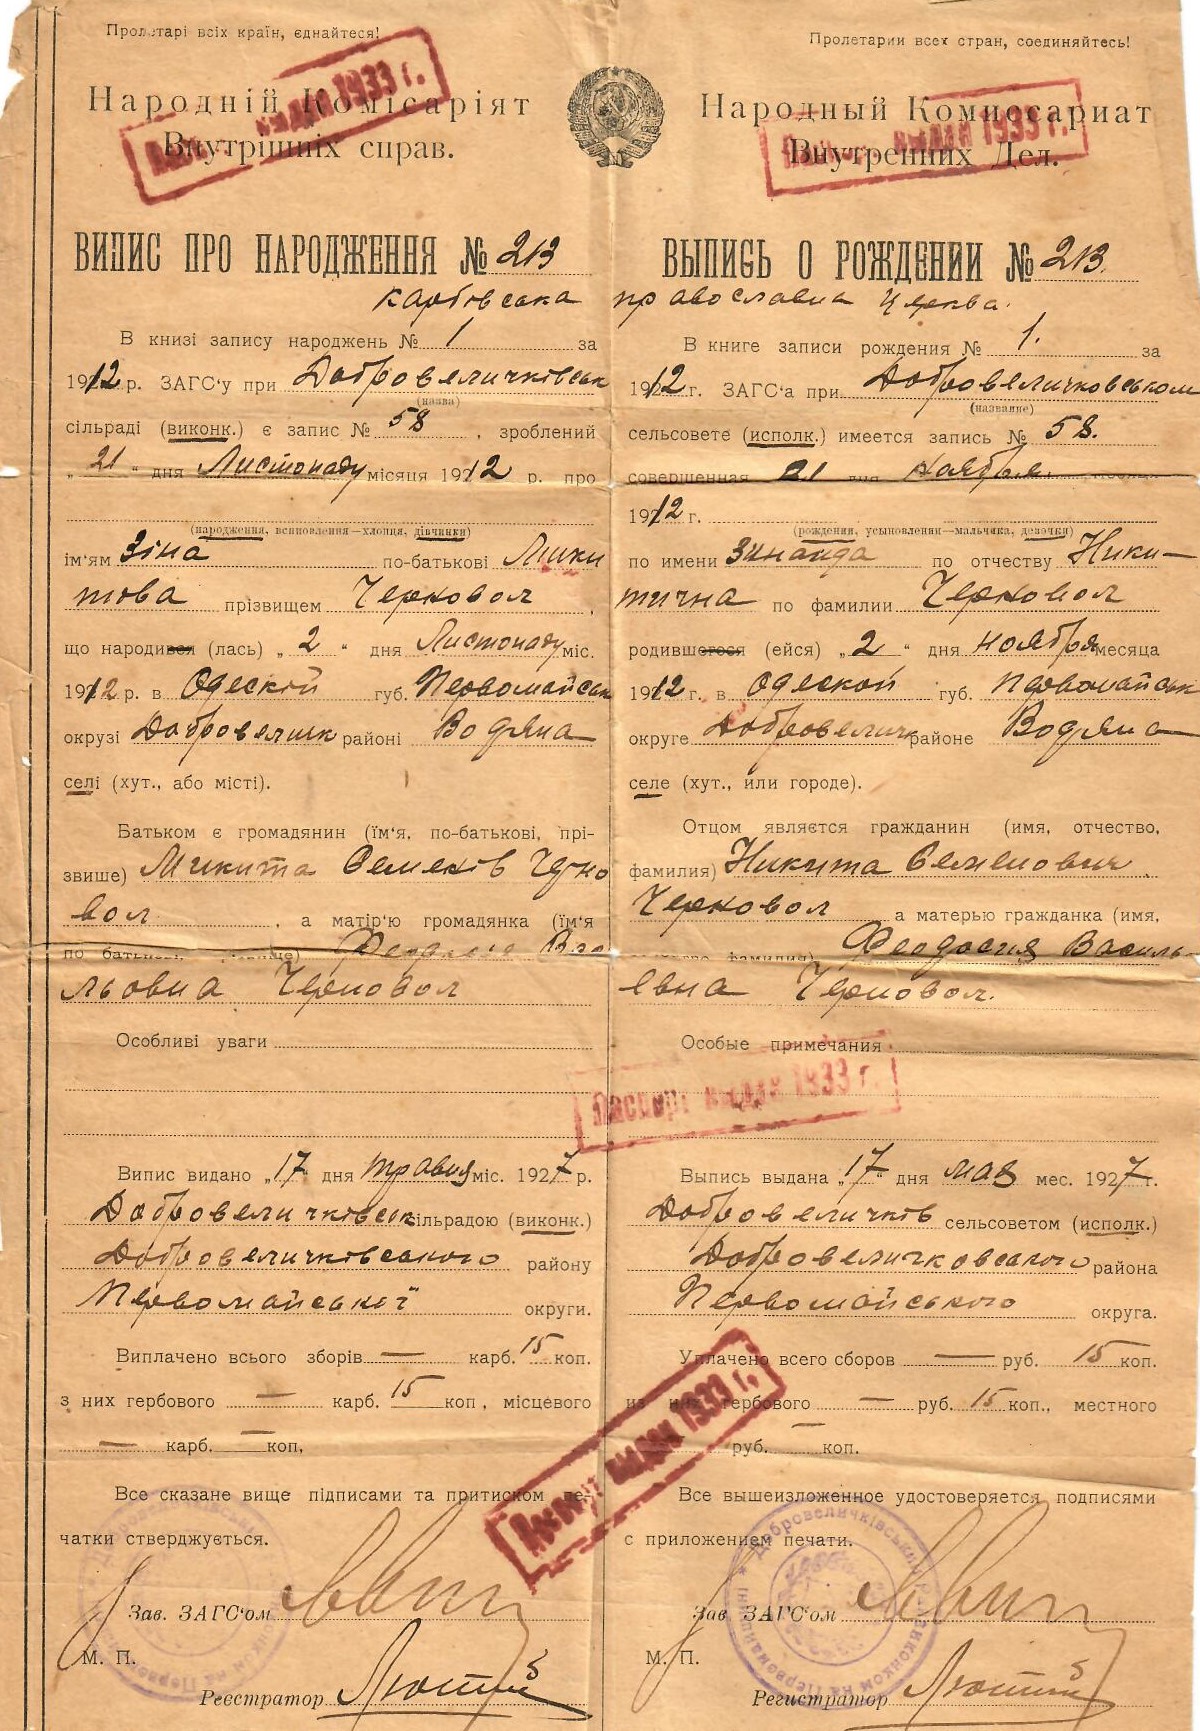 Пролетарі всіх країн, єднайтеся!
Народній Комісаріят
Внутрішніх справ.
ВИПИС ПРО НАРОДЖЕННЯ № 213
Карбовська
В книзі запису народжень № 1 за
1912 р. ЗАГС'у при Добровеличківськ
(назва)
сільраді (виконк.) є запис № 58, зроблений
„21“ дня Листопаду місяця 1912 р. про
(народження, всиновлення—хлопця, дівчинки)
ім'ям Зіна по-батькові Мики
това прізвищем Черновол,
що народився (лась) „2“ дня Листопаду міс.
1912 р. в Одеській губ. Первомайськ
окрузі Добровеличк районі Водяна
селі (хут., або місті).
Батьком є громадянин (їм'я, по-батькові, прі-
звише) Микита Семенів Черно
вол, а матір'ю громадянка (їм'я
по батькові, ) Феодосія Васи
льовна Черновол
Особливі уваги
Випис видано „17“ дня травня міс. 1927 р.
Добровеличківськ сільрадою (виконк.)
Добровеличківського району
Первомайської округи.
Виплачено всього зборів — карб. 15 коп.
з них гербового — карб. 15 коп, місцевого
— карб. — коп,
Все сказане вище підписами та притиском пе-
чатки стверджується.
Зав. ЗАГС'ом
М. П.
Реєстратор Лютий
Пролетарии всех стран, соединяйтесь!
Народный Комиссариат
Внутренних Дел.
ВЫПИСЬ О РОЖДЕНИИ № 213.
православна церква.
В книге записи рождения № 1. за
1912 г. ЗАГС'а при Добровеличковськом
(название)
сельсовете (исполк.) имеется запись № 58.
совершенная 21 дня ноября
1912 г.
(рождения, усыновлении—мальчика, девочки)
по имени Зинаида по отчеству Ники-
тична по фамилии Черновол
родившегося (ейся) „2“ дня ноября месяца
1912 г. в Одеской губ. Первомайськ
округе Добровеличк районе Водяна
селе (хут., или городе).
Отцом является гражданин (имя, отчество,
фамилия) Никита Семенович
Черновол а матерью гражданка (имя,
фамилия) Феодосия Василь-
евна Черновол.
Особые примечания
Выпись выдана „17“ дня мая мес. 1927 г.
Добровеличків сельсоветом (исполк.)
Добровеличковського района
Первомайського округа.
Уплачено всего сборов — руб. 15 коп.
из них гербового — руб. 15 коп., местного
руб. — коп.
Все вышеизложенное удостоверяется подписями
с приложением печати.
Зав ЗАГС'ом
М. П.
Регистратор Лютий
Паспорт выдан 1933 г.
Паспорт выдан 1933 г.
Паспорт выдан 1933 г.
Паспорт выдан 1933 г.